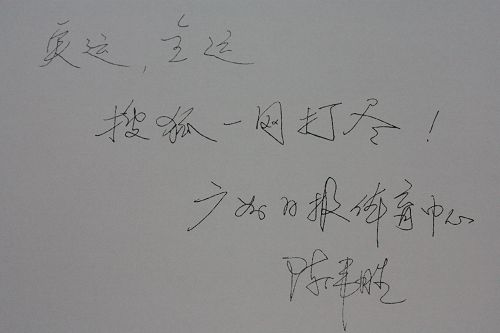 奥运，全运
搜狐一网打尽！
广州日报体育中心
陈伟胜